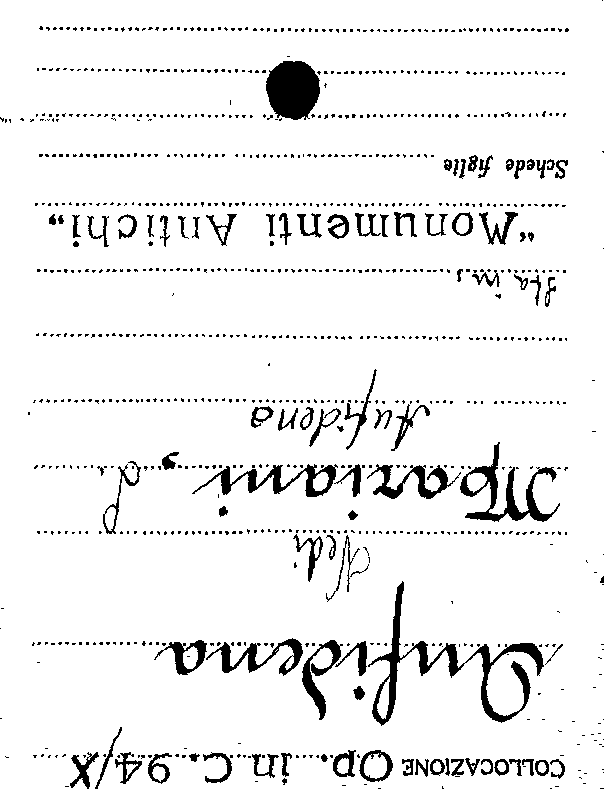 COLLOCAZIONE Op. in C. 94/X
Aufidena
Vedi
Mariani, L.
Aufidena
Sta in,
"Monumenti Antichi„
Schede figlie